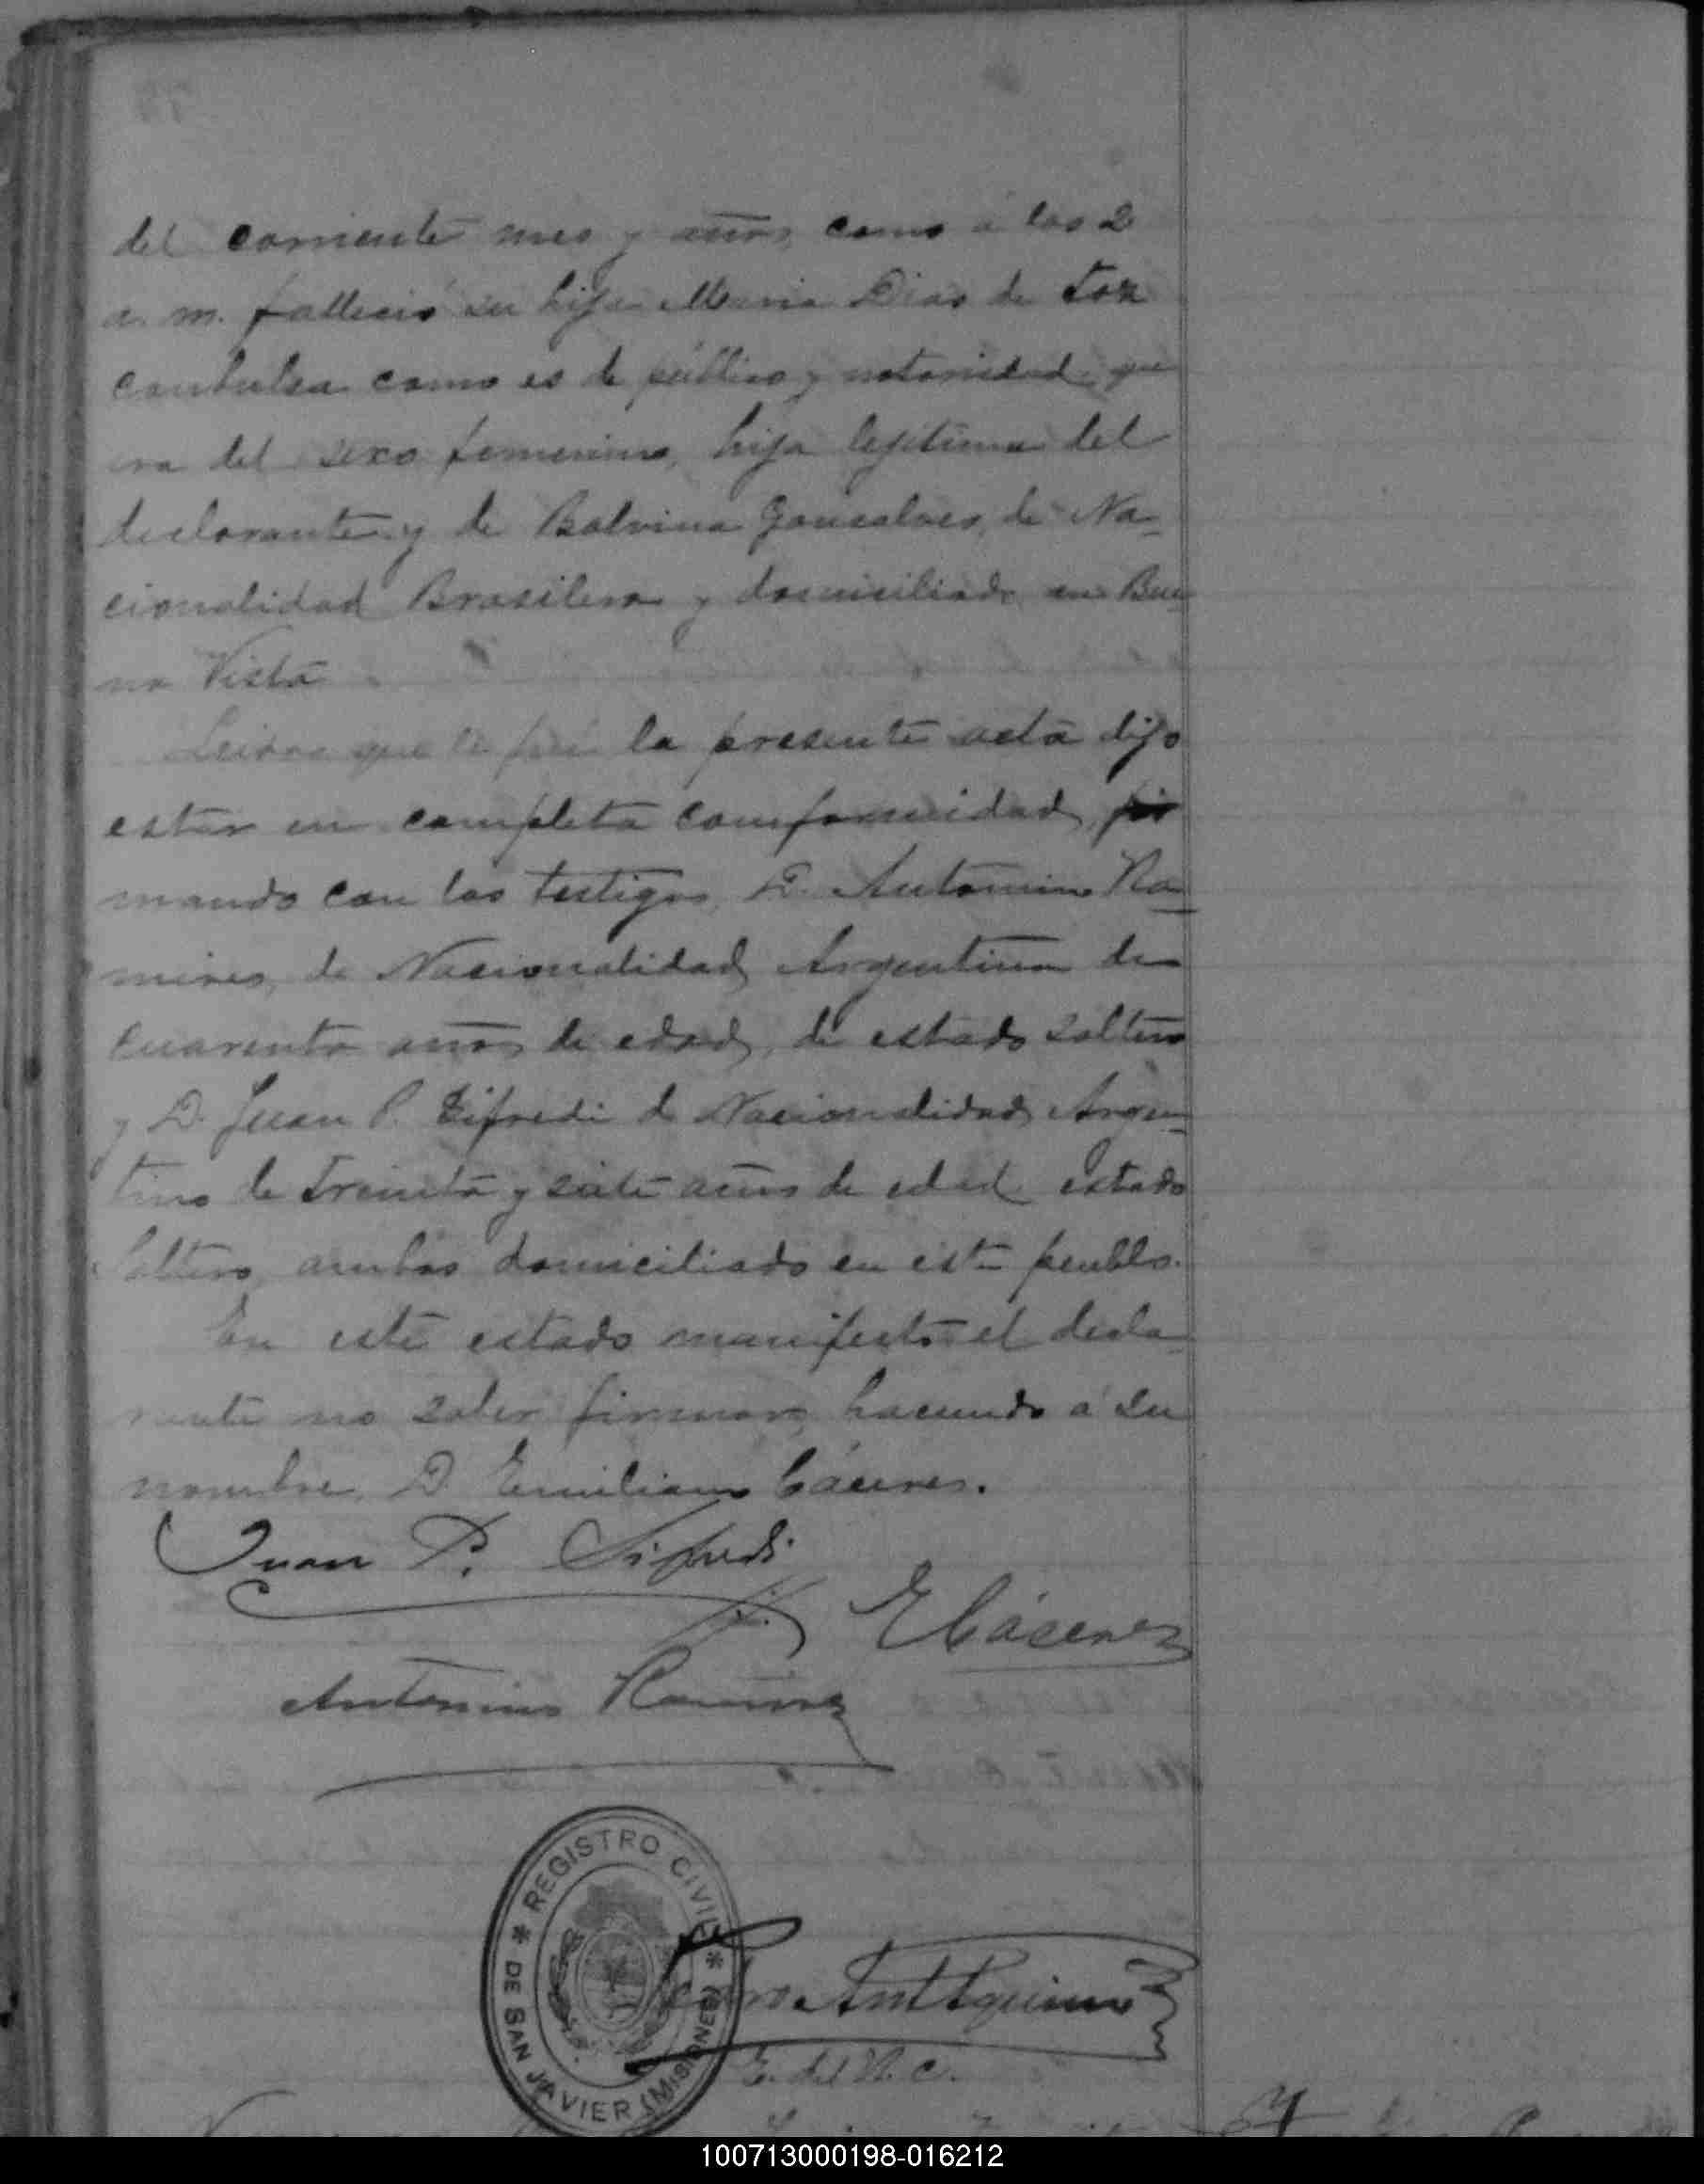 del corriente mes y años, como á las 2
a. m. fallecio su hija Maria Dias de tos
combulsa como es de publico y notoriedad, que
era del sexo femenino, hija lejitima del
declarante y de Balvina Gonsalves, de Na-
cionalidad Brasilera y domiciliado en Bue
na Vista
Leida que le fué la presente acta dijo
estar en completa comformidad, fir
mando con los testigos, D. Antonino Ra-
mires, de Nacionalidad Argentina de
cuarenta años de edad, de estado soltero
y D. Juan P. Sifredi de Nacionalidad Argen-
tino de treinta y siete años de edad estado
soltero, ambos domiciliado en este pueblo.
En este estado manifesto el decla
rante no saber firmar, haciendo á su
nombre, D. Emiliano Cáceres.
Juan P. Sifredi
E Cáceres
Antonino Ramirez
REGISTRO CIVIL
DE SAN JAVIER (MISIONES)
E. del R. C.
100713000198-016212